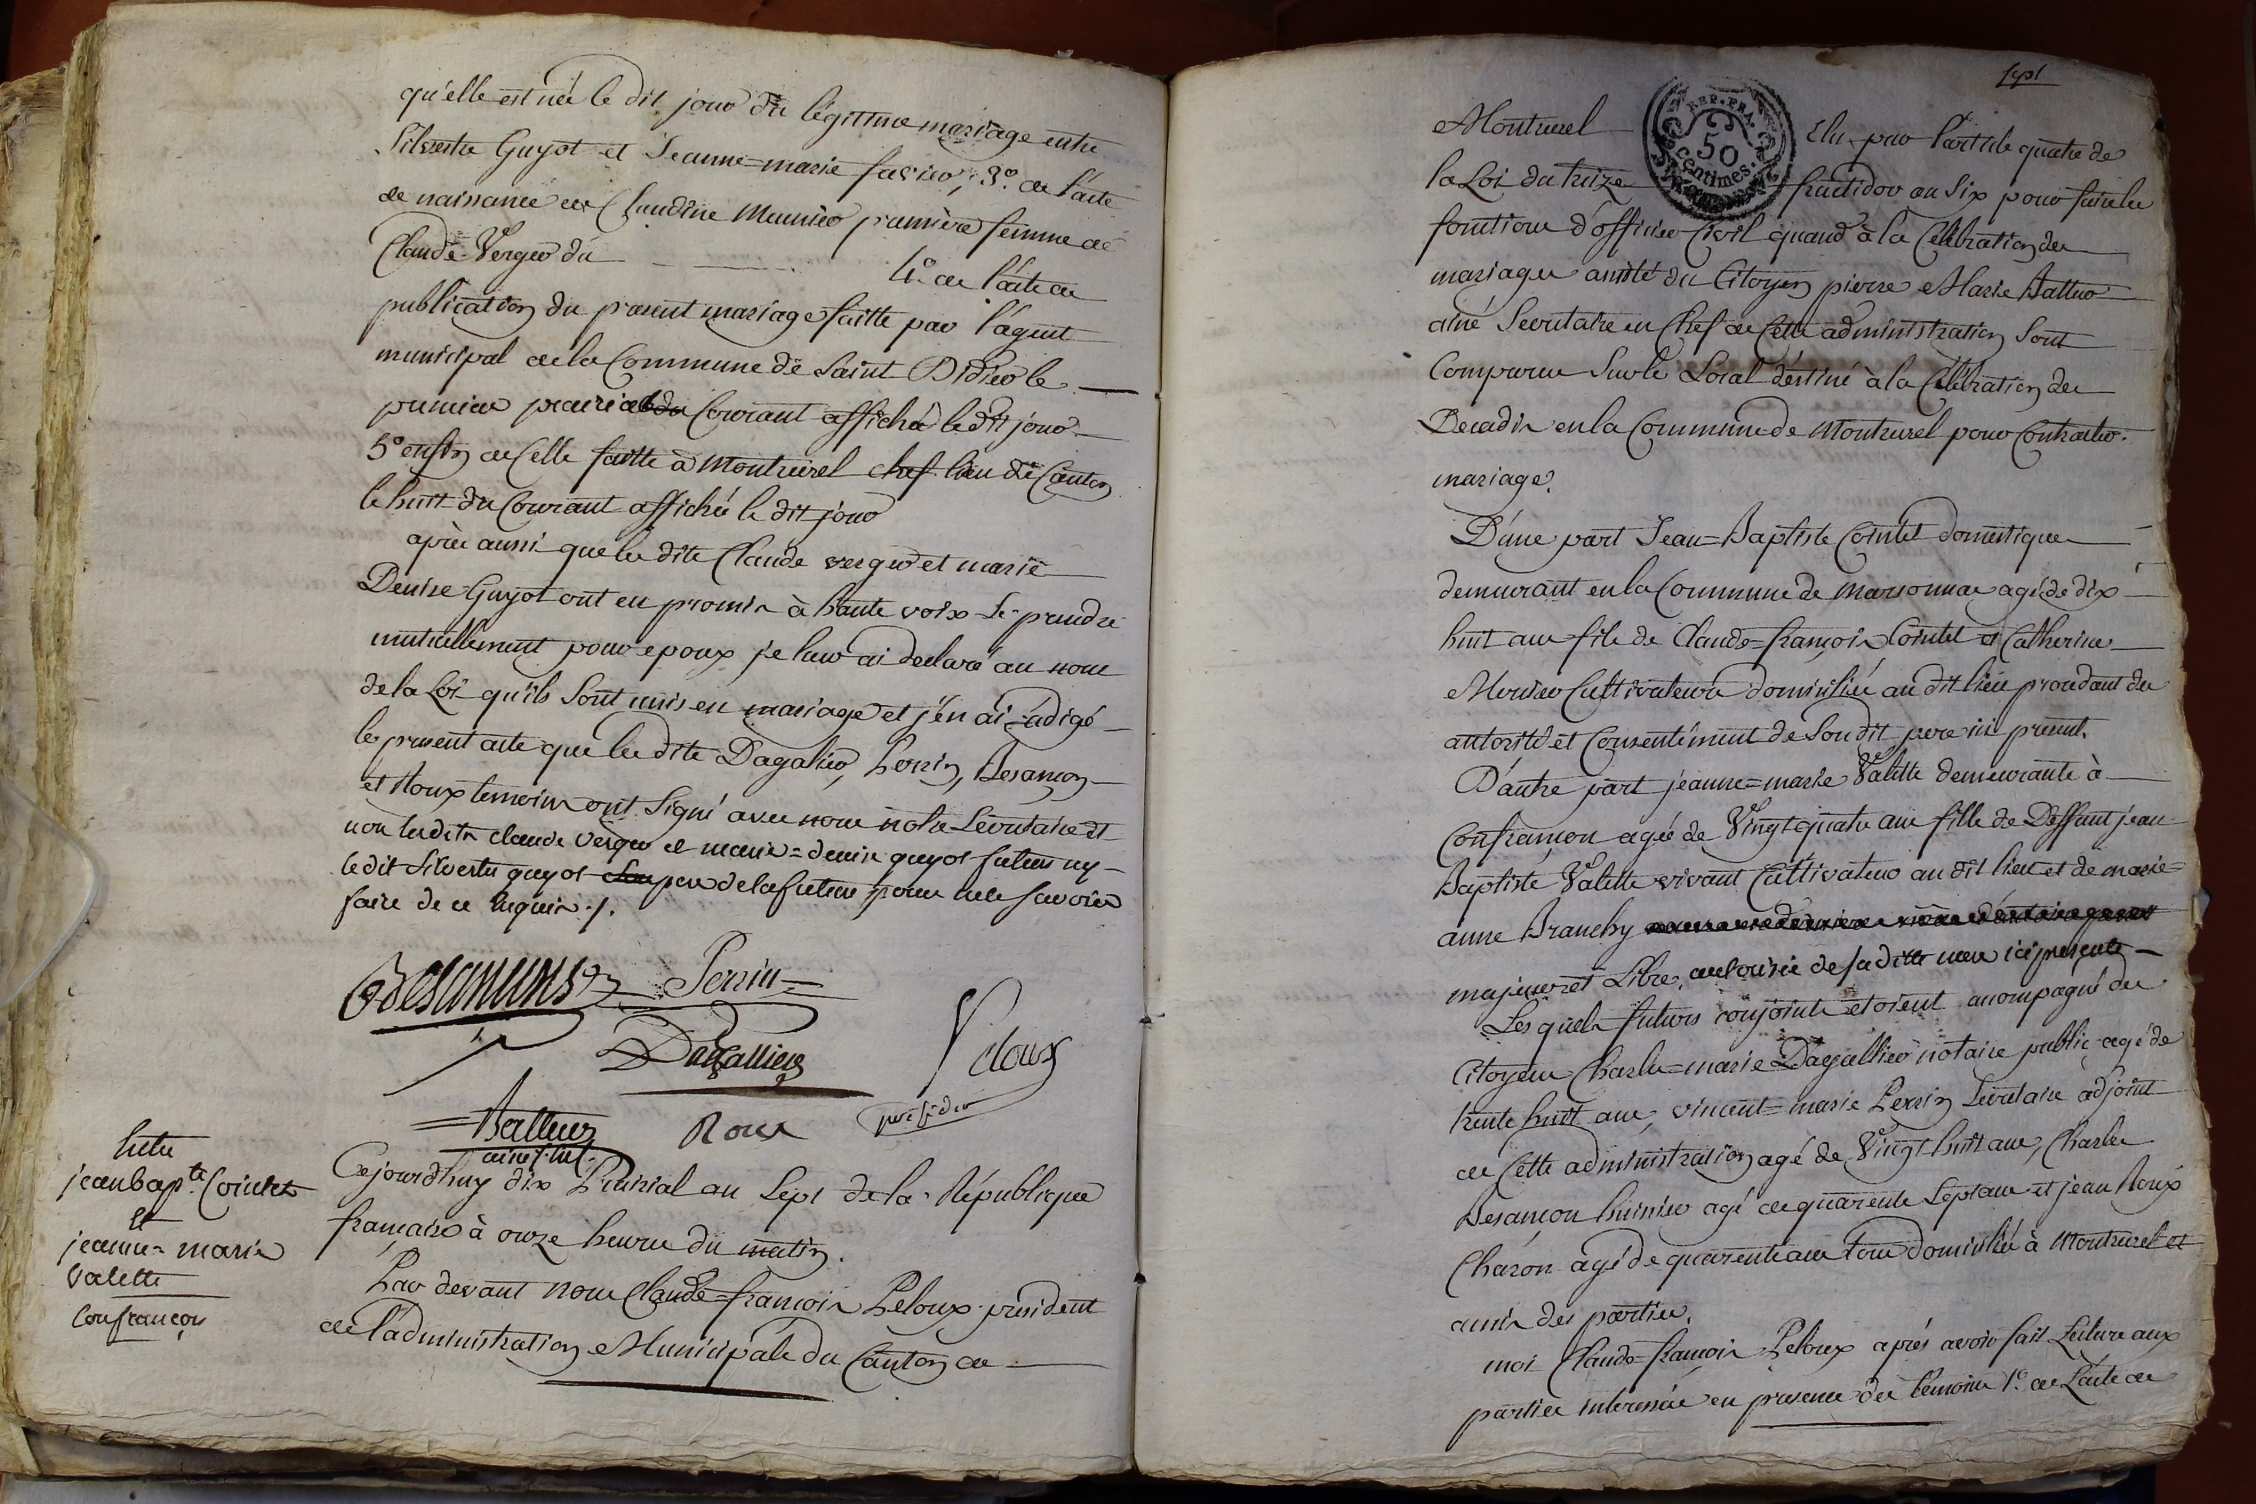 qu'elle est née le dit jour du légitime mariage entre
Silvestre Guyot et Jeanne=marie favier, 3.° de l'acte
de naissance de Claudine Meunier première femme de
Claude Verger du 4.° de l'acte de
publication du present mariage faitte par l'agent
municipal de la Commune de Saint Didier le
premier prairial du Courant affiché le dit jour
5.° enfin de Celle faitte à Montrevel chef lieu de Canton
le huit du Courant affiché le dit jour
après aussi que les dits Claude verger et marie
Denise Guyot ont eu promis à haute voix Se prendre
mutuellement pour epoux je leur ai declaré au nom
de la Loi qu'ils Sont unis en mariage et j'en ai rédigé
le present acte que les dits Dagalier, Perrin, Besançon
et Roux temoins ont Signé avec nous notre Secretaire et
non lesdits claude Verger et marie=denise guyot futurs ny
le dit Silvestre guyot pere de la future pour ne le savoir
faire de ce requis ./.
Besançons Perrin
Dagallier
Peloux
president
Balleur
ainé S.taire
Roux
Entre
jean bap.te Cointet
et
jeanne=marie
valette
Confrançon
Cejourdhuy dix Prairial an Sept de la République
française à onze heures du matin.
Par devant nous Claude=françois Peloux president
de l'administration Municipale du Canton de
sept
Montrevel Elu par l'article quatre de
REP. FRA.
50
centimes.
la Loi du treize fructidor an Six pour faire les
fonctions d'officier Civil quand à la Celebration des
mariages assisté du Citoyen pierre Marie
ainé Secretaire en Chef de Cette administration Sont
Comparus Sur le Local déstiné à la Célébration des
Decadis en la Commune de Montrevel pour Contracter
mariage.
D'une part Jean=Baptiste Cointet domestique
demeurant en la Commune de Marsonnas agé de dix
huit ans fils de Claude=françois Cointet et Catherine
Monier Cultivateurs domiciliés au dit lieu procedant de
autorité et Consentément de Son dit pere ici present.
D'autre part jeanne=marie Valette demeurante à
Confrançon agée de Vingt quatre ans fille de Deffunt jean
Baptiste Valette vivant Cultivateur au dit lieu et de marie=
anne Branchy
majeure et Libre, authorisée de sa ditte mere ici presente
Les quels futurs conjoints etoient acompagné des
Citoyens Charles=marie Dagallier notaire public agé de
trente huit ans, vincent=marie Perrin Secretaire adjoint
de Cette administration agé de Vingt huit ans, Charles
Besançon huissier agé de quarente Sept ans et jean Roux
Charon agé de quarente ans tous domiciliés à Montrevel et
amis des parties.
moi Claude=françois Peloux après avoir fait Lecture aux
parties interessées en presence des témoins 1.° de L'acte de